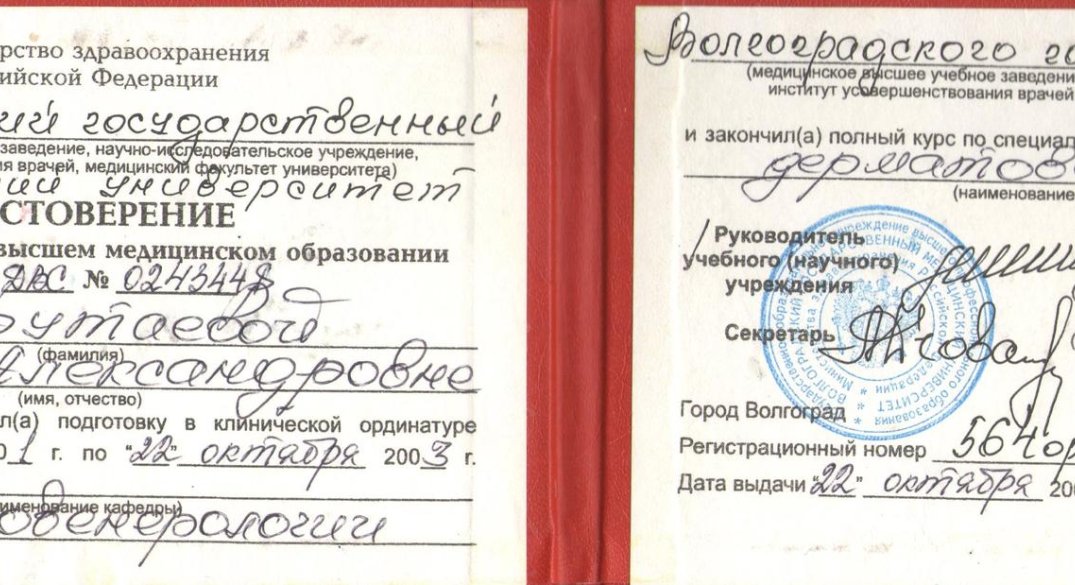 рство здравоохранения
ийской Федерации
ий государственный
заведение, научно-исследовательское учреждение,
ия врачей, медицинский факультет университета)
ий университет
СТОВЕРЕНИЕ
высшем медицинском образовании
ДВС № 0243448
утаевой
(фамилия)
Александровне
(имя, отчество)
л(а) подготовку в клинической ординатуре
01 г. по "22" октября 2003 г.
именование кафедры)
овенерологии
Волгоградского го
(медицинское высшее учебное заведени
институт усовершенствования врачей
и закончил(а) полный курс по специал
дерматов
(наименование
Руководитель
учебного (научного)
учреждения
Секретарь
Город Волгоград
Регистрационный номер 564 ор
Дата выдачи "22" октября 200